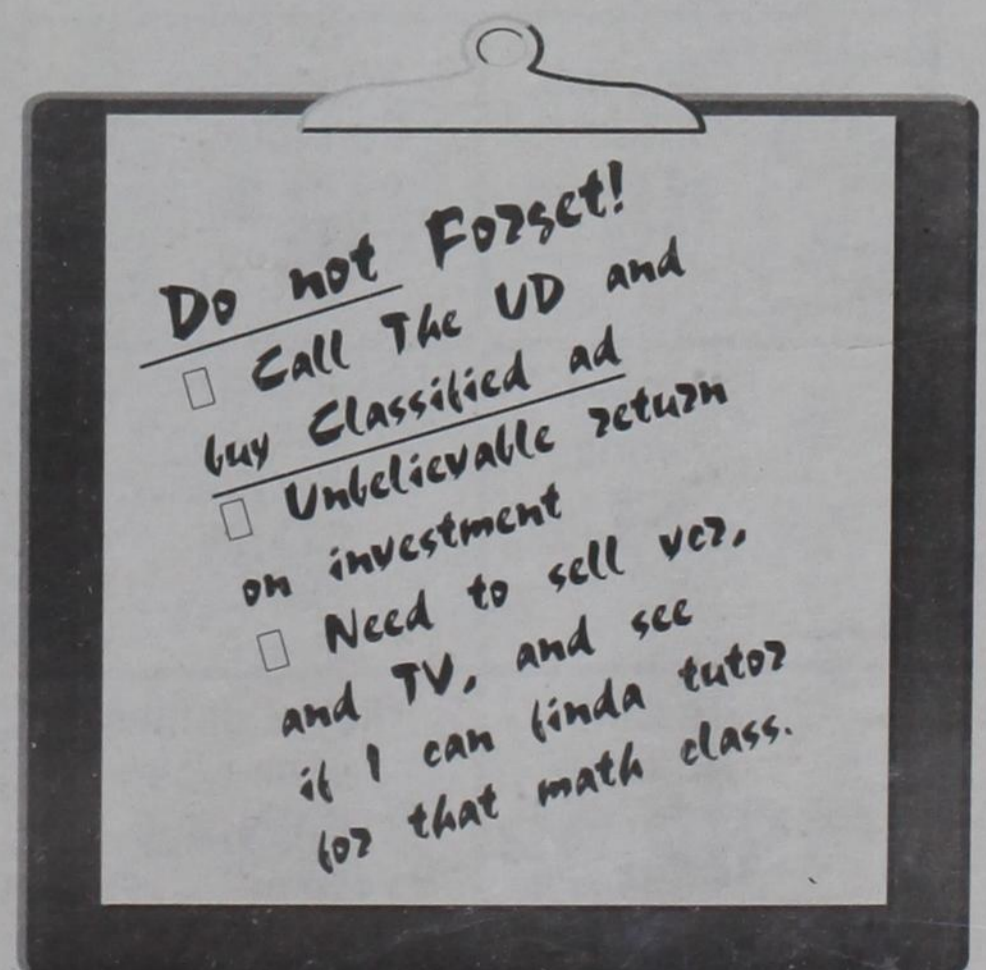 Do not Forget!
▯ Call The UD and
buy Classified ad
▯ Unbelievable return
on investment
▯ Need to sell vcr,
and TV, and see
if I can finda tutor
for that math class.